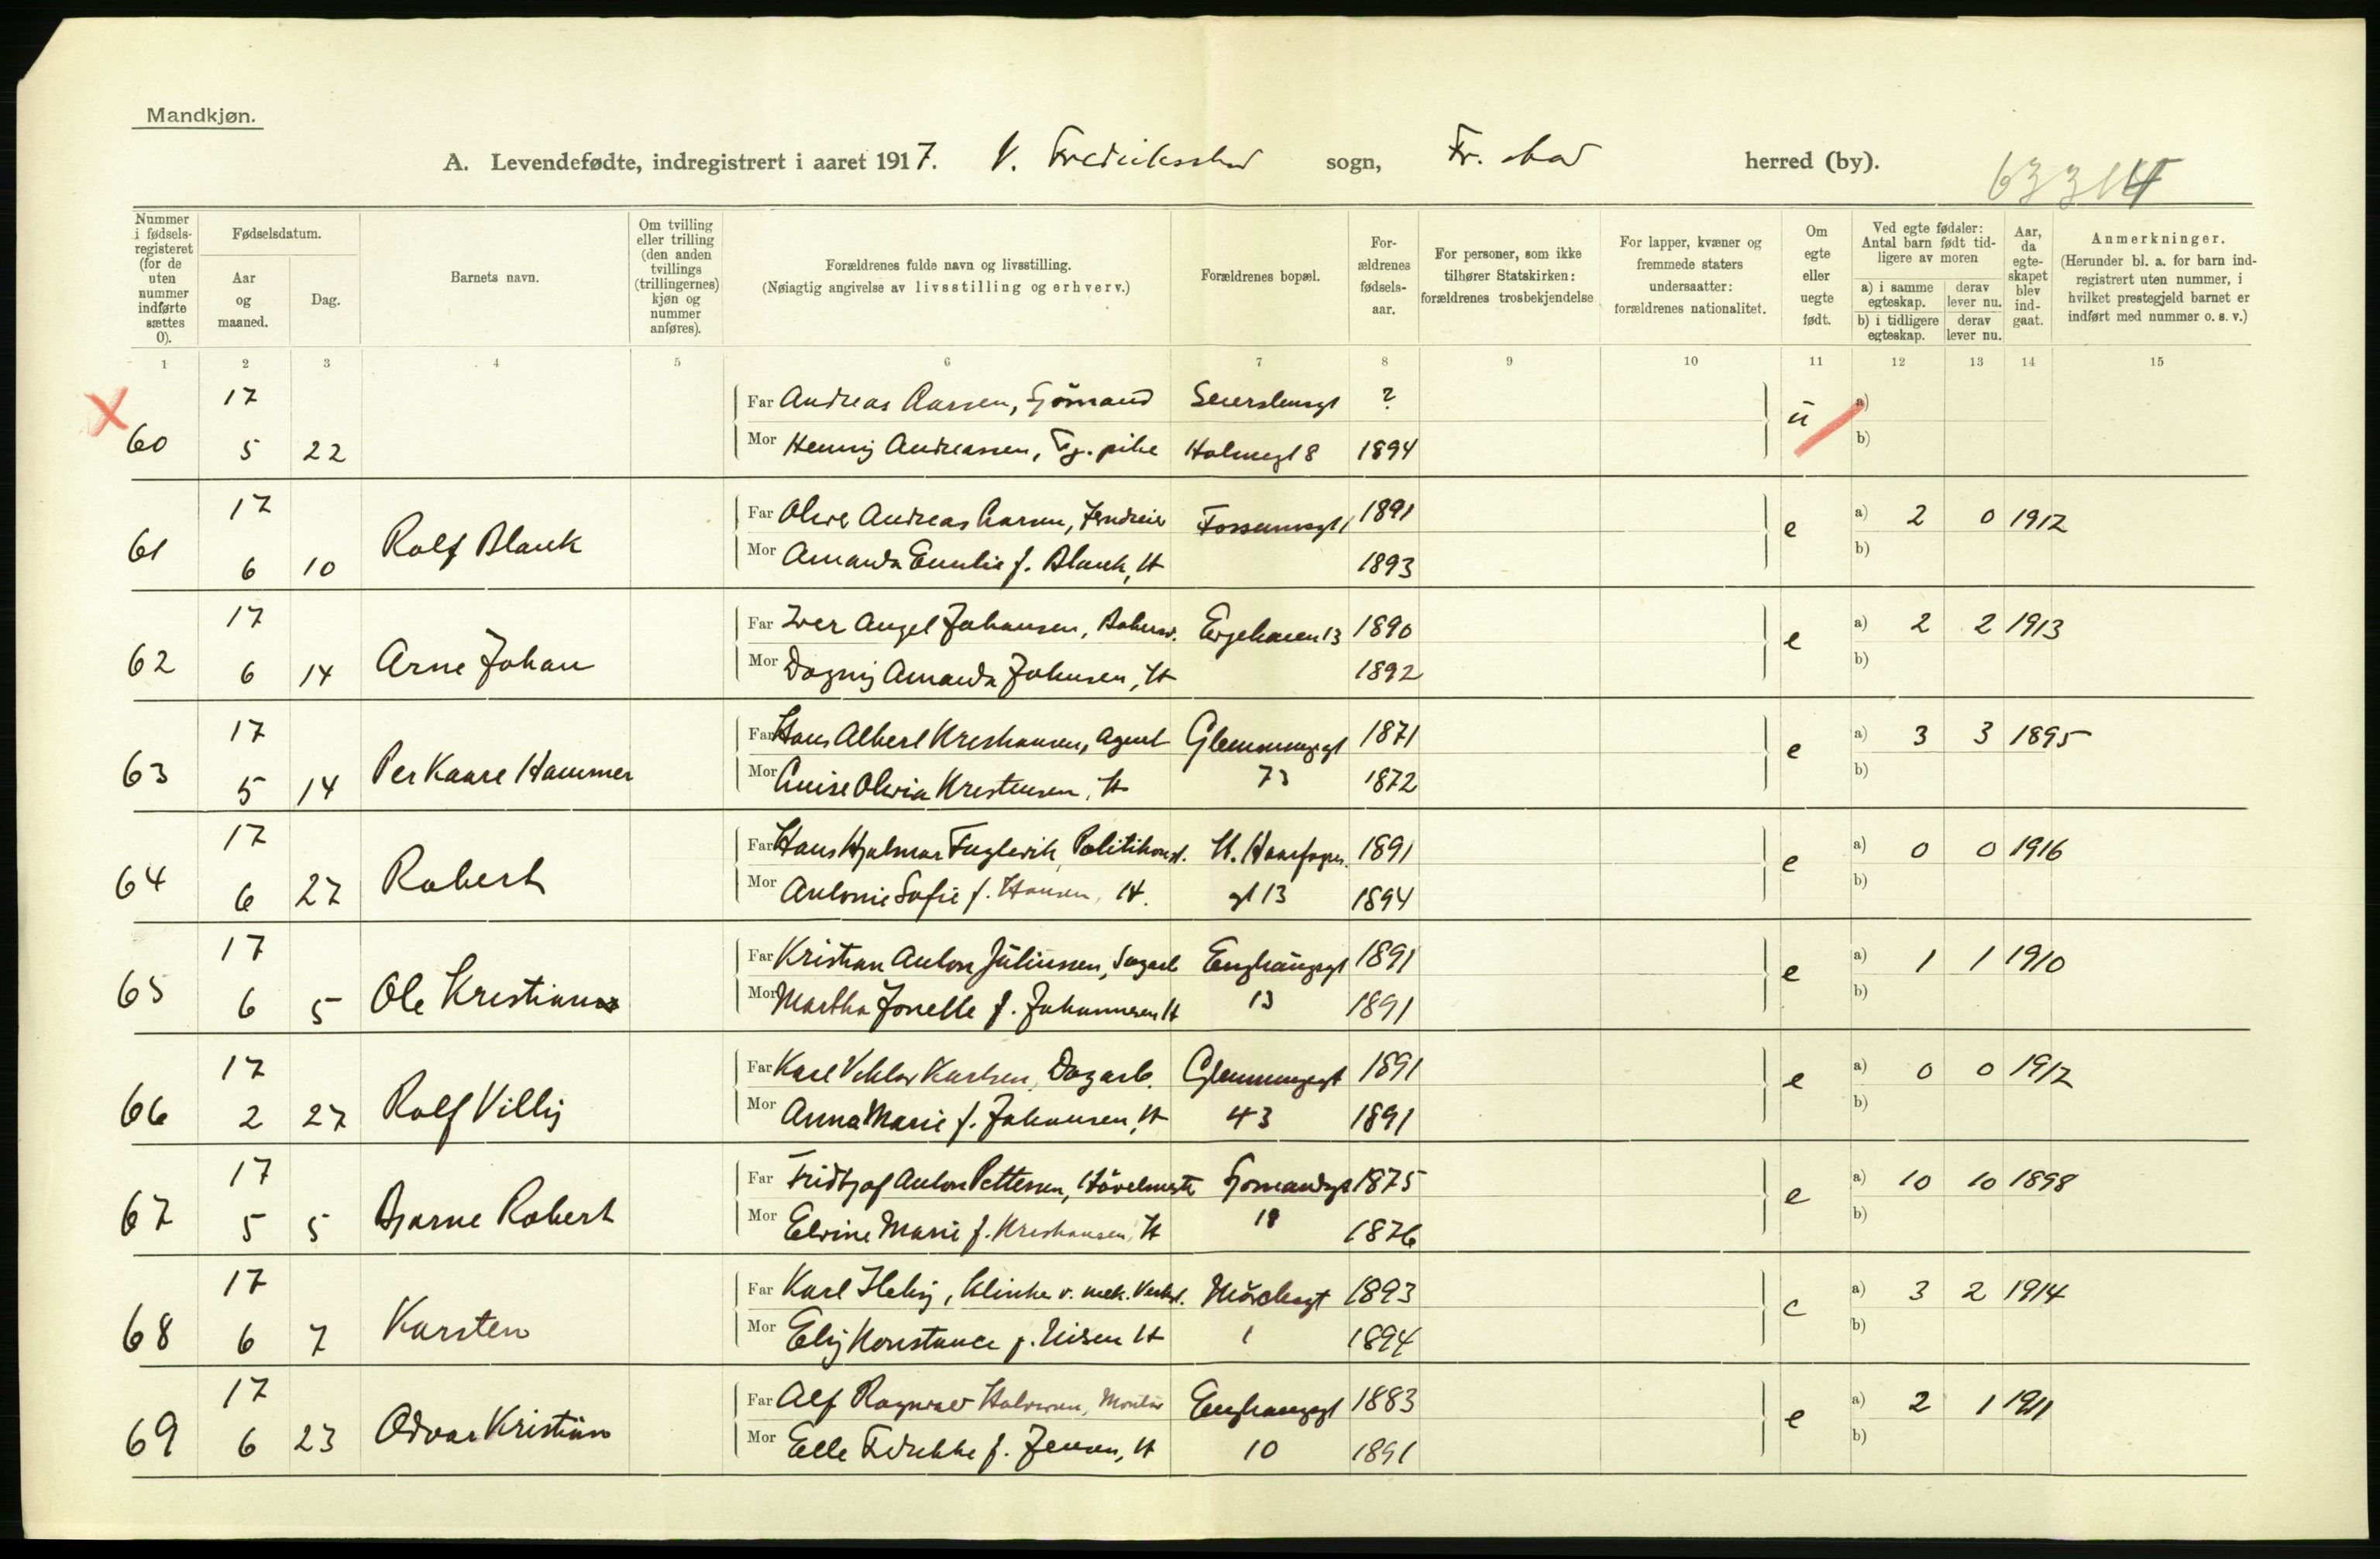 Mandkjøn.
A. Levendefødte, indregistrert i aaret 1917. V. Fredriksstad sogn, Fr. stad herred (by).
Nummer i fødselsregisteret (for de uten nummer indførte sættes 0).
Fødselsdatum.
Aar og maaned.
Dag.
Barnets navn.
Om tvilling eller trilling (den anden tvillings (trillingernes) kjøn og nummer anføres).
Forældrenes fulde navn og livsstilling.
(Nøiagtig angivelse av livsstilling og erhverv.)
Forældrenes bopæl.
Forældrenes fødselsaar.
For personer, som ikke tilhører Statskirken: forældrenes trosbekjendelse
For lapper, kvæner og fremmede staters undersaatter: forældrenes nationalitet.
Om egte eller uegte født.
Ved egte fødsler: Antal barn født tidligere av moren
a) i samme egteskap. derav lever nu.
b) i tidligere egteskap. derav lever nu.
Aar, da egteskapet blev indgaat.
Anmerkninger.
(Herunder bl. a. for barn indregistrert uten nummer, i hvilket prestegjeld barnet er indført med nummer o. s. v.)
1 2 3 4 5 6 7 8 9 10 11 12 13 14 15
17 Far Andreas Aassen, Sjömand ? u a)
60 5 22 Mor Henny Andreassen, Tj. pike Holmegt 8 1894 b)
17 Far Andreas 1891 e a) 2 0 1912
61 6 10 Rolf Blank Mor Amanda Emilie f. Blank, H 1893 b)
17 Far Iver Angel Johansen, 13 1890 e a) 2 2 1913
62 6 14 Arne Johan Mor Dagny Amanda Johnsen, H 1892 b)
17 Far Hans Albert Kristiansen, Agent Glemmengt 1871 e a) 3 3 1895
63 5 14 Per Kaare Hammer Mor Olivia Kristensen, H 73 1872 b)
17 Far Hans Hjalmar Fuglevik, Politikonst. H. Haarfagres 1891 e a) 0 0 1916
64 6 27 Robert Mor Antonie Sofie f. Hansen, H. gt 13 1894 b)
17 Far Kristian Anton Juliussen, Enghaugsgt 1891 e a) 1 1 1910
65 6 5 Ole Kristian Mor Martha Jonette f. Johannesen H 13 1891 b)
17 Far Karl Viktor Karlsen, Dagarb. Glemmengt 1891 e a) 0 0 1912
66 2 27 Rolf Villy Mor Anna Marie f. Johansen, H 43 1891 b)
17 Far Fridtjof Anton Pettersen, Hövelmester Sjömandsgt 1875 e a) 10 10 1898
67 5 5 Bjarne Robert Mor Elvine Marie f. Kristiansen, H 18 1876 b)
17 Far Karl v. mek. Verkst. 1893 e a) 3 2 1914
68 6 7 Karsten Mor Elly Konstance f. Nilsen H 1 1894 b)
17 Far Alf Ragnvald Halvorsen, Montör Enghaugsgt 1883 e a) 2 1 1911
69 6 23 Odvar Kristian Mor Elle Fredrikke f. Jensen, H 10 1891 b)